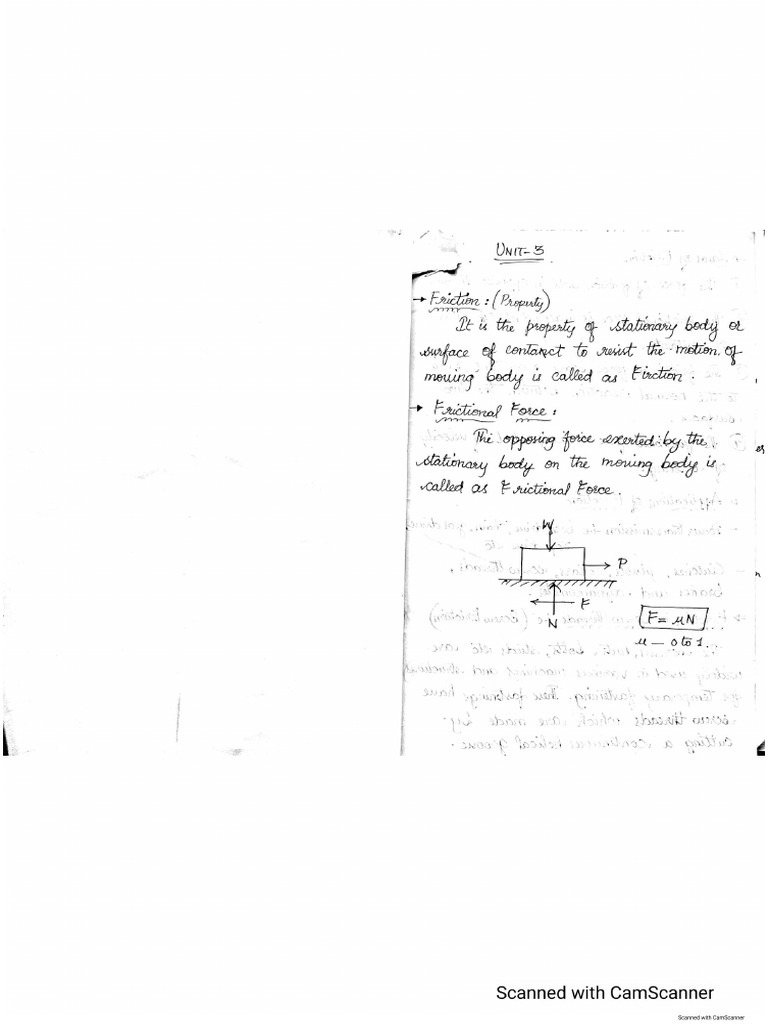 UNIT-3
→ Friction : (Property)
It is the property of stationary body or
surface of contanct to resist the motion of
moving body is called as Firction.
→ Frictional Force :
The opposing force exerted by the
stationary body on the moving body is
called as Frictional Force.
W
P
F
N
F = μN
μ — 0 to 1.
Scanned with CamScanner
Scanned with CamScanner